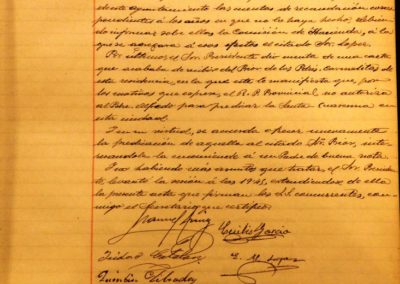 de este ayuntamiento las cuentas de recaudación corres-
pondientes á los años en que no lo haya hecho, debien-
do informar sobre ellas la Comisión de Hacienda, á la
que se agregará á esos efectos el citado Sr. Lopez.
Por último, el Sr. Presidente dio cuenta de una carta
que acababa de recibir del Prior de los Pdres. Carmelitas de
esta residencia, en la que este le manifiesta que, por
los motivos que expresa, el R. P. Provincial, no autoriza
al Padre Alfredo para predicar la Santa Cuaresma en
esta ciudad.
En su virtud, se acuerda ofrecer nuevamente
la predicación de aquella al citado Sr. Prior, inte-
resandole la encomiende á un Padre de buena nota.
Y no habiendo más asuntos que tratar, el Sr. Presiden-
te, levantó la sesión á las 19'45, extendiéndose de ella
la presente acta que firman los S.S. concurrentes, con-
migo el Secretario que certifico.
Emilio Garcia